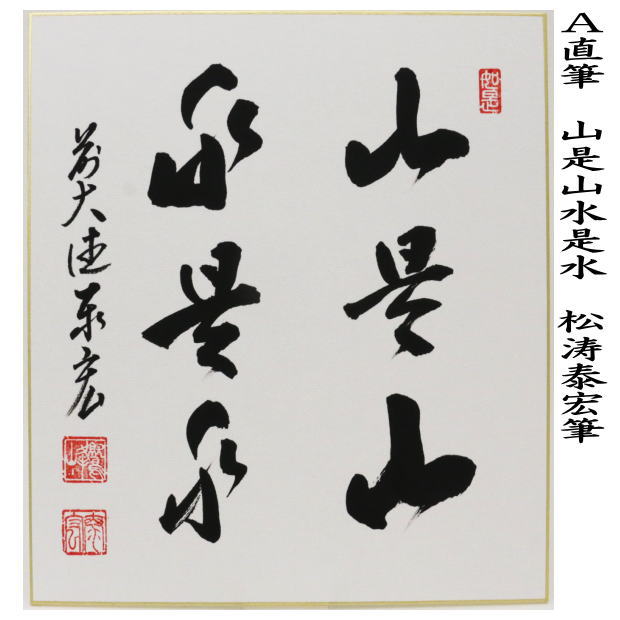 A直筆　山是山水是水　松涛泰宏筆
如是
山是山
水是水
前大徳泰宏